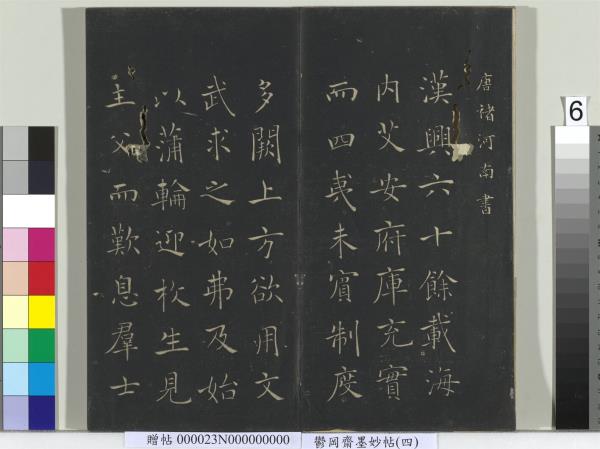 唐褚河南書
漢興六十餘載海
內艾安府庫充實
而四夷未賓制度
多闕上方欲用文
武求之如弗及始
以蒲輪迎枚生見
主父而歎息羣士
6
贈帖 000023N000000000
鬱岡齋墨妙帖(四)